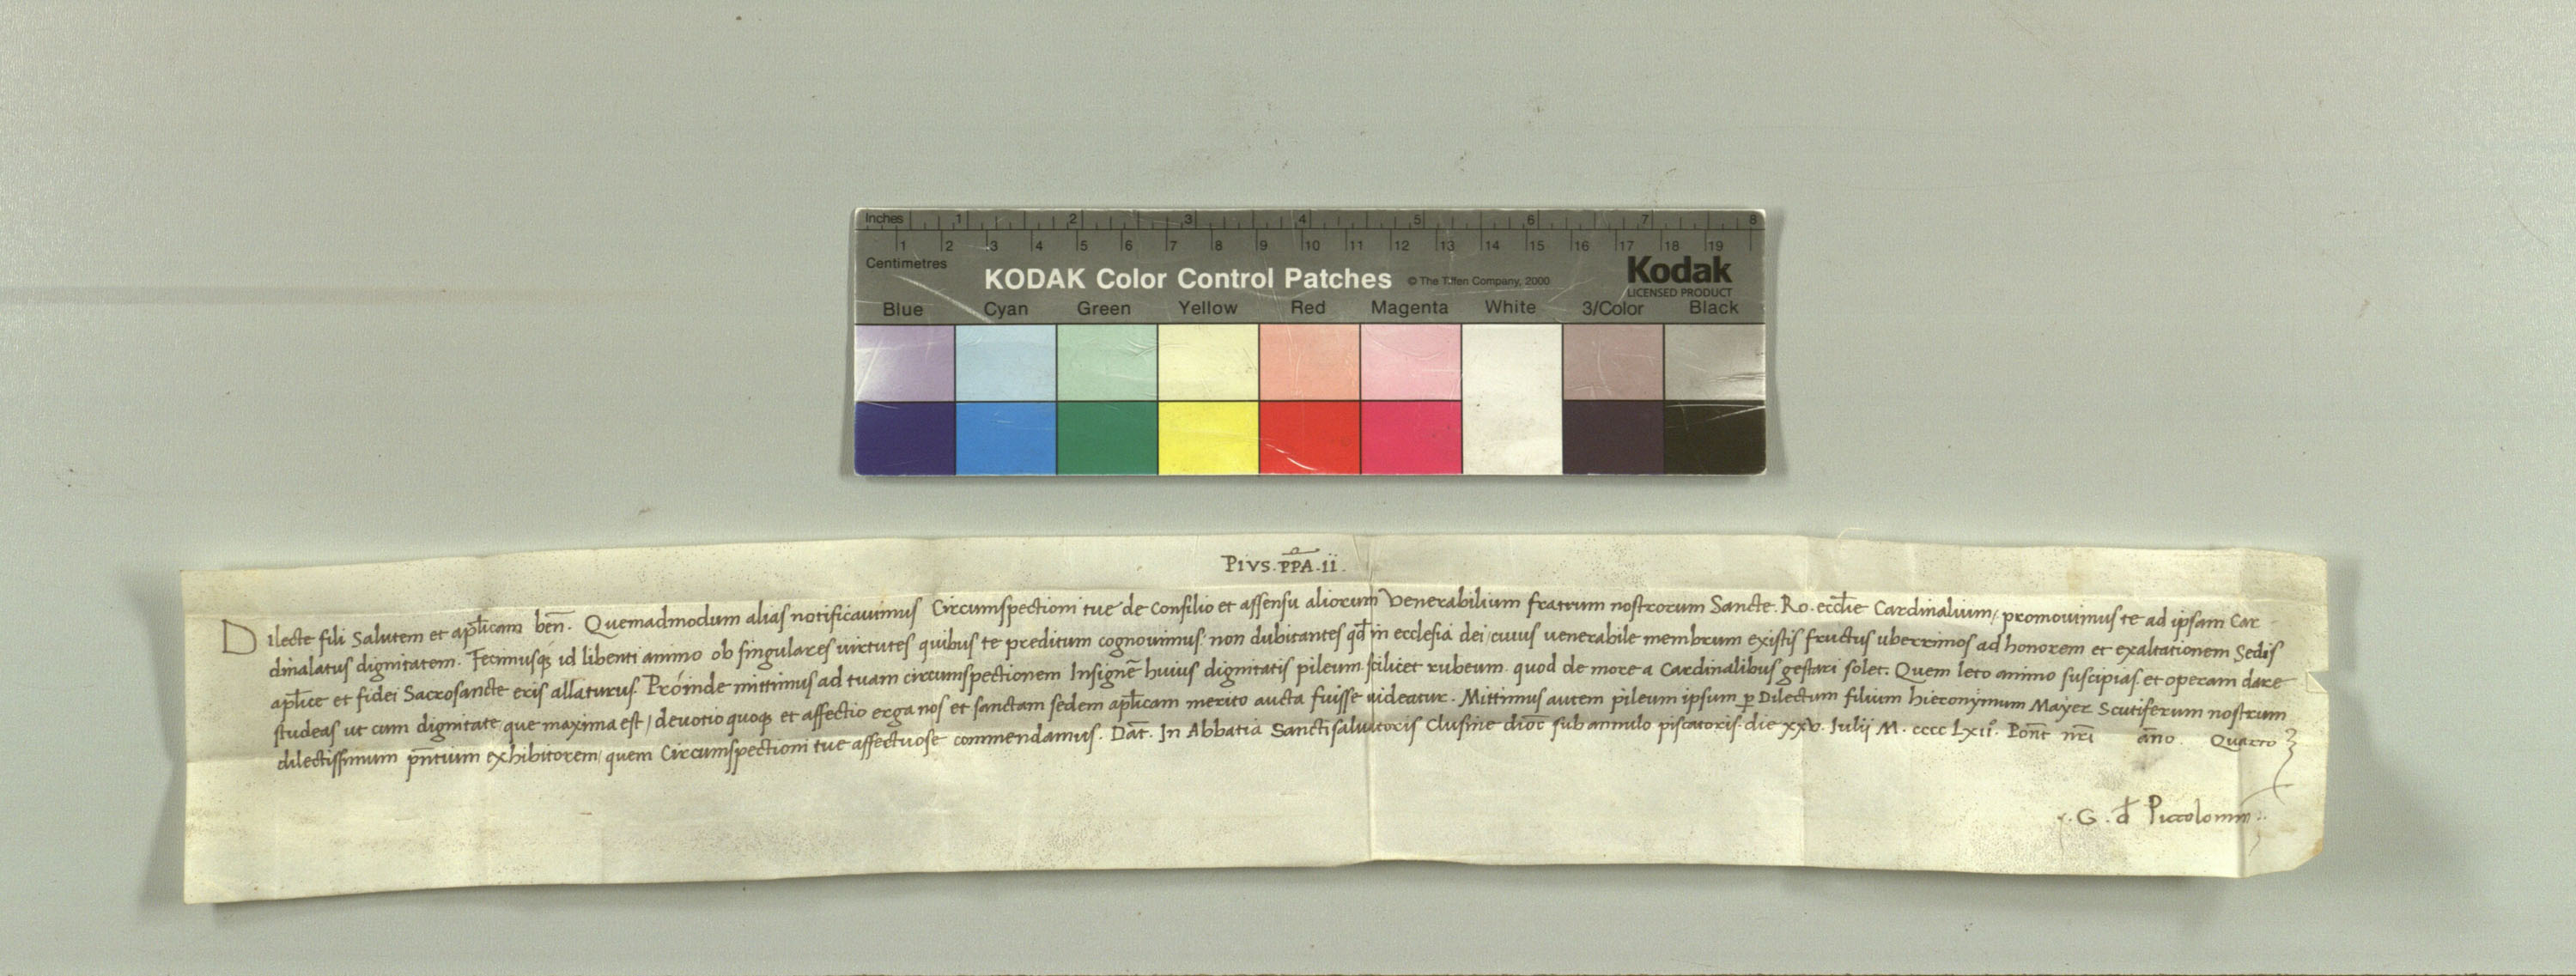 Inches 1 2 3 4 5 6 7 8
1 2 3 4 5 6 7 8 9 10 11 12 13 14 15 16 17 18 19
Centimetres
KODAK Color Control Patches © The Tiffen Company, 2000 Kodak
LICENSED PRODUCT
Blue Cyan Green Yellow Red Magenta White 3/Color Black
Pivs. PPA. ii.
Dilecte fili Salutem et apl̅icam ben̅. Quemadmodum alias notificauimus Circumspectioni tue de Consilio et assensu aliorum Venerabilium fratrum nostrorum Sancte. Ro. eccl̅ie Cardinalium, promouimus te ad ipsam Car
dinalatus dignitatem. Fecimusqꝫ id libenti animo ob singulares uirtutes quibus te preditum cognouimus. non dubitantes qd̅ in ecclesia dei, cuius uenerabile membrum existis fructus uberrimos ad honorem et exaltationem Sedis
apl̅ice et fidei Sacrosancte eris allaturus. Próinde mittimus ad tuam circumspectionem Insigne̅ huius dignitatis pileum. scilicet rubeum. quod de more a Cardinalibus gestari solet. Quem leto animo suscipias. et operam dare
studeas ut cum dignitate, que maxima est, deuotio quoqꝫ et affectio erga nos et sanctam sedem apl̅icam merito aucta fuisse uideatur. Mittimus autem pileum ipsum ꝑ Dilectum filium hieronymum Mayer Scutiferum nostrum
dilectissimum pn̅tium exhibitorem, quem Circumspectioni tue affectuose commendamus. Dat̅. In Abbatia Sancti saluatoris Clusine dioc̅ sub annulo piscatoris. die xxv. Iulii M. cccc Lxii°. Pont̅ nr̅i an̅o. Quarto
.G. d̅ Piccolomin̅.